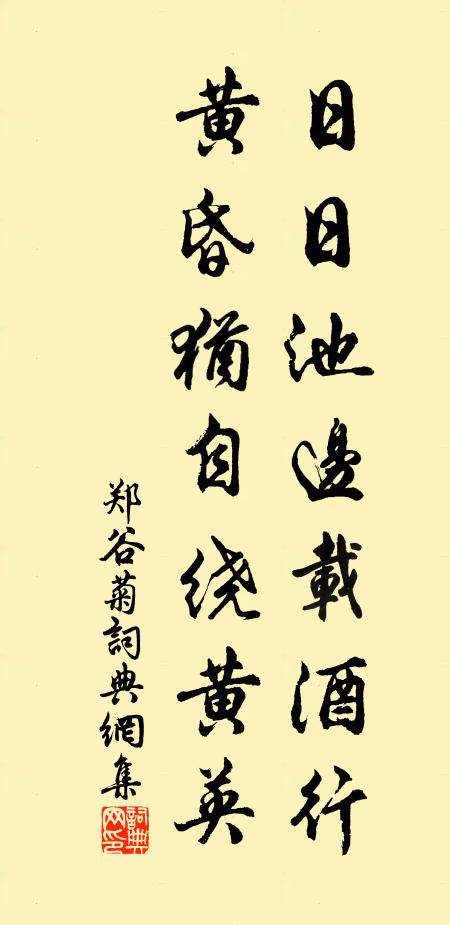 日日池邊載酒行
黄昏猶自绕黄英
郑谷菊詞典網集
詞典网印